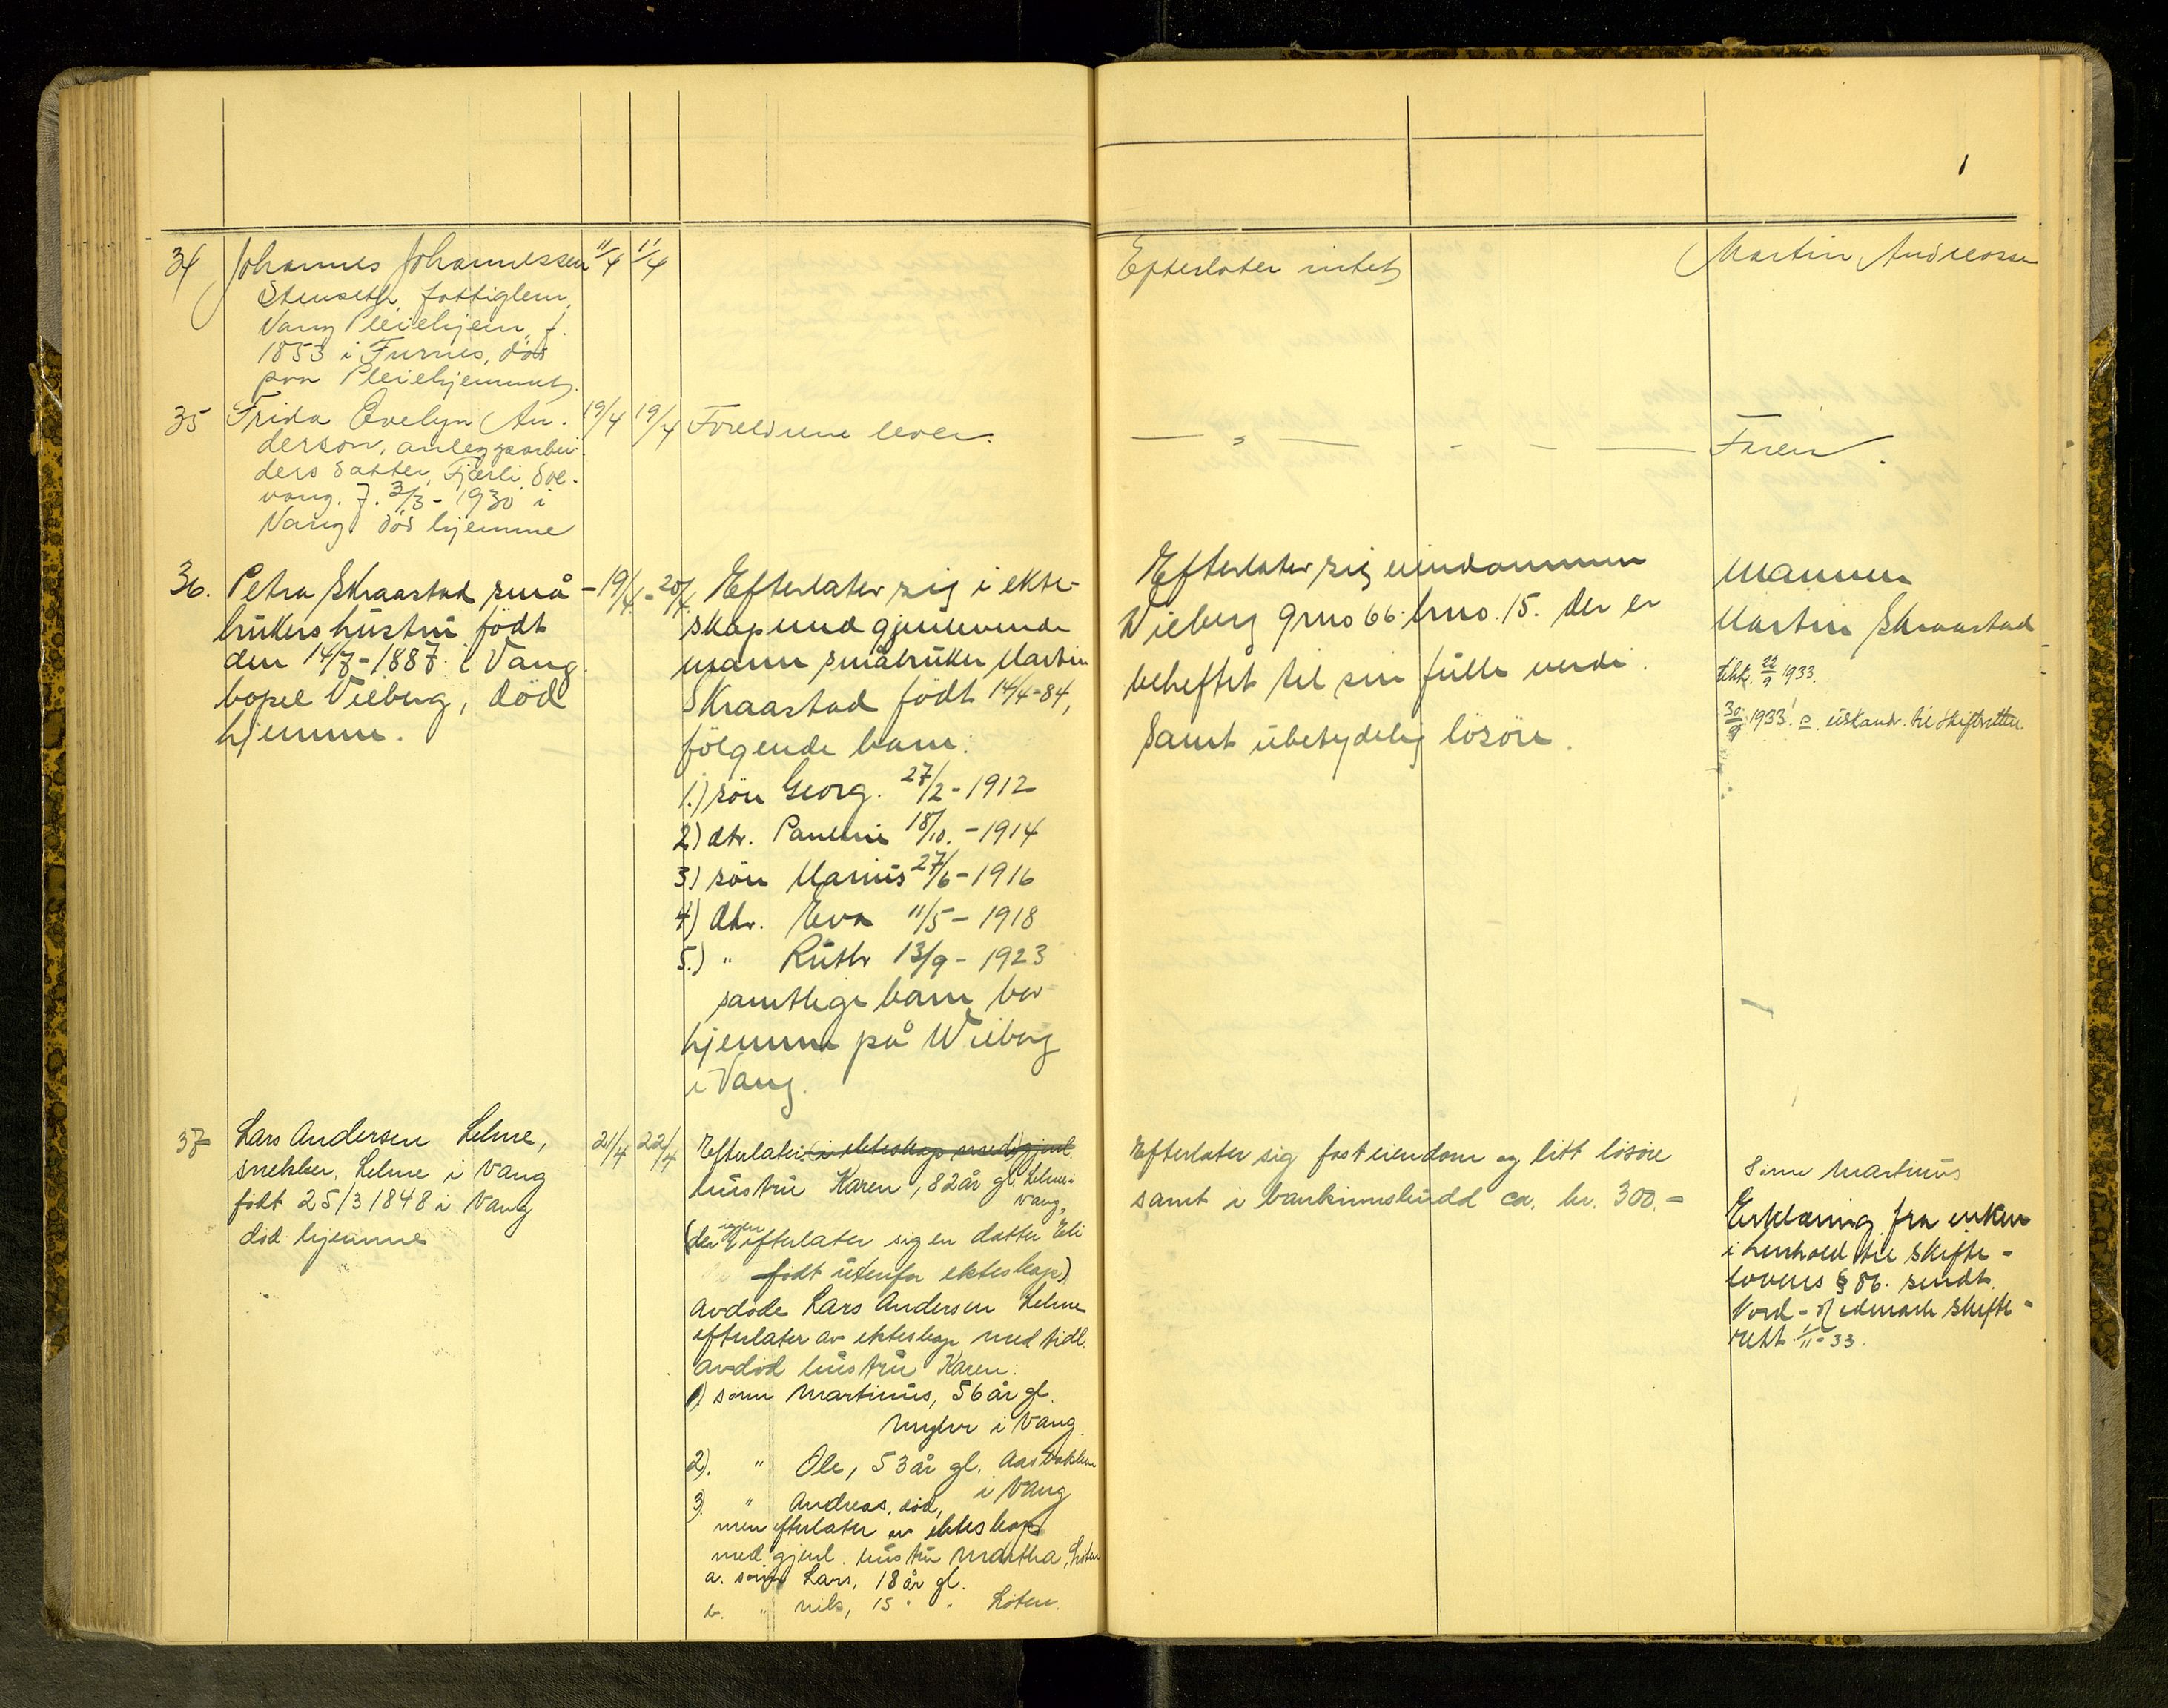 34
Johannes Johannessen
Stenseth, fattiglem,
Vang Pleiehjem, f.
1853 i Furnes, död
paa Pleiehjemmet.
11/4
11/4
Efterlater intet
Martin Andreassen
35
Frida Evelyn An-
derson, anleggsarbei-
ders datter, Fjærli Sol-
vang. f. 3/3 - 1930 i
Vang död hjemme
19/4
19/4
Foreldrene lever.
— " — - - —
Faren.
36.
Petra Skraastad små-
brukers hustru född
den 14/7 - 1887 i Vang.
bopel Vieberg, död
hjemme.
19/4.
20/4.
Efterlater sig i ekte-
skap med gjenlevende
mann småbruker Martin
Skraastad födt 14/4-84,
fölgende barn:
1.) sön Georg. 27/2 - 1912
2) dtr. Pauline 18/10. - 1914
3) sön Marius 27/6 - 1916
4) dtr. Eva 11/5 - 1918
5.) " Ruth 13/9 - 1923
samtlige barn bor
hjemme på Wieberg
i Vang.
Efterlater sig eiendommen
Wieberg gno 66 bno. 15. der er
beheftet til sin fulle verdi.
Samt ubetydelig lösöre.
Mannen
Martin Skraastad
tilst. 22/9 1933.
30/9 1933. utskandr. til Skifteretten.
37
Lars Andersen Lelme,
snekker, Lelme i Vang
födt 25/3 1848 i Vang
död hjemme
21/4
22/4
Efterlater (i ekteskap med) gjenl.
hustru Karen, 82 år gl. Lelme i
Vang,
(der igjen efterlater sig en datter Eli
födt utenfor ekteskap)
Avdöde Lars Andersen Lelme
efterlater av ekteskap med tidl.
avdöd hustru Karen:
1) sönn Martinus, 56 år gl.
i Vang.
2). " Ole, 53 år gl. Aasbakken
i Vang
3. " Andreas, död,
men efterlater av ekteskap
med gjenl. hustru Martha, Löten
a. sönn Lars, 18 år gl.
b. " Nils, 15 " " Löten.
Efterlater sig fast eiendom og litt lösöre
samt i bankinnskudd ca. kr. 300.-
Sönn Martinus
Erklæring fra enken
i henhold til skifte-
lovens § 86. sendt
Nord-Hedmark skifte-
rett 1/11-33.